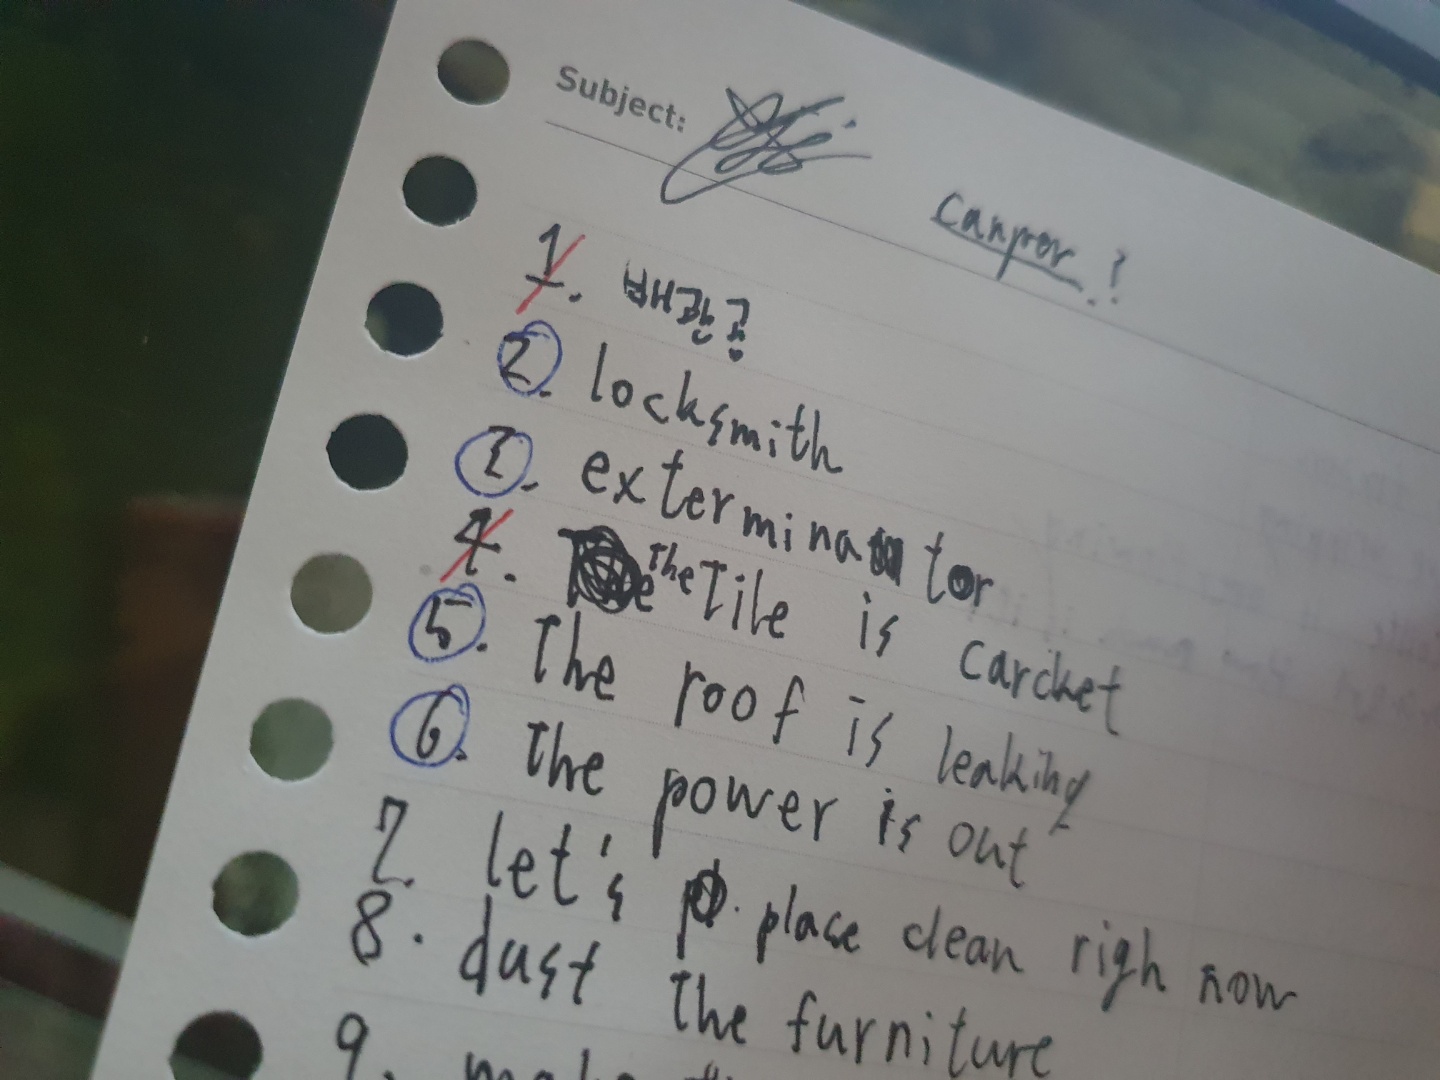 Subject:
canper.!
1. 배관공
2. locksmith
3. exterminator
4. The Tile is carcket
5. The roof is leaking
6. The power is out
7. let's place clean righ now
8. dust The furniture
9. make